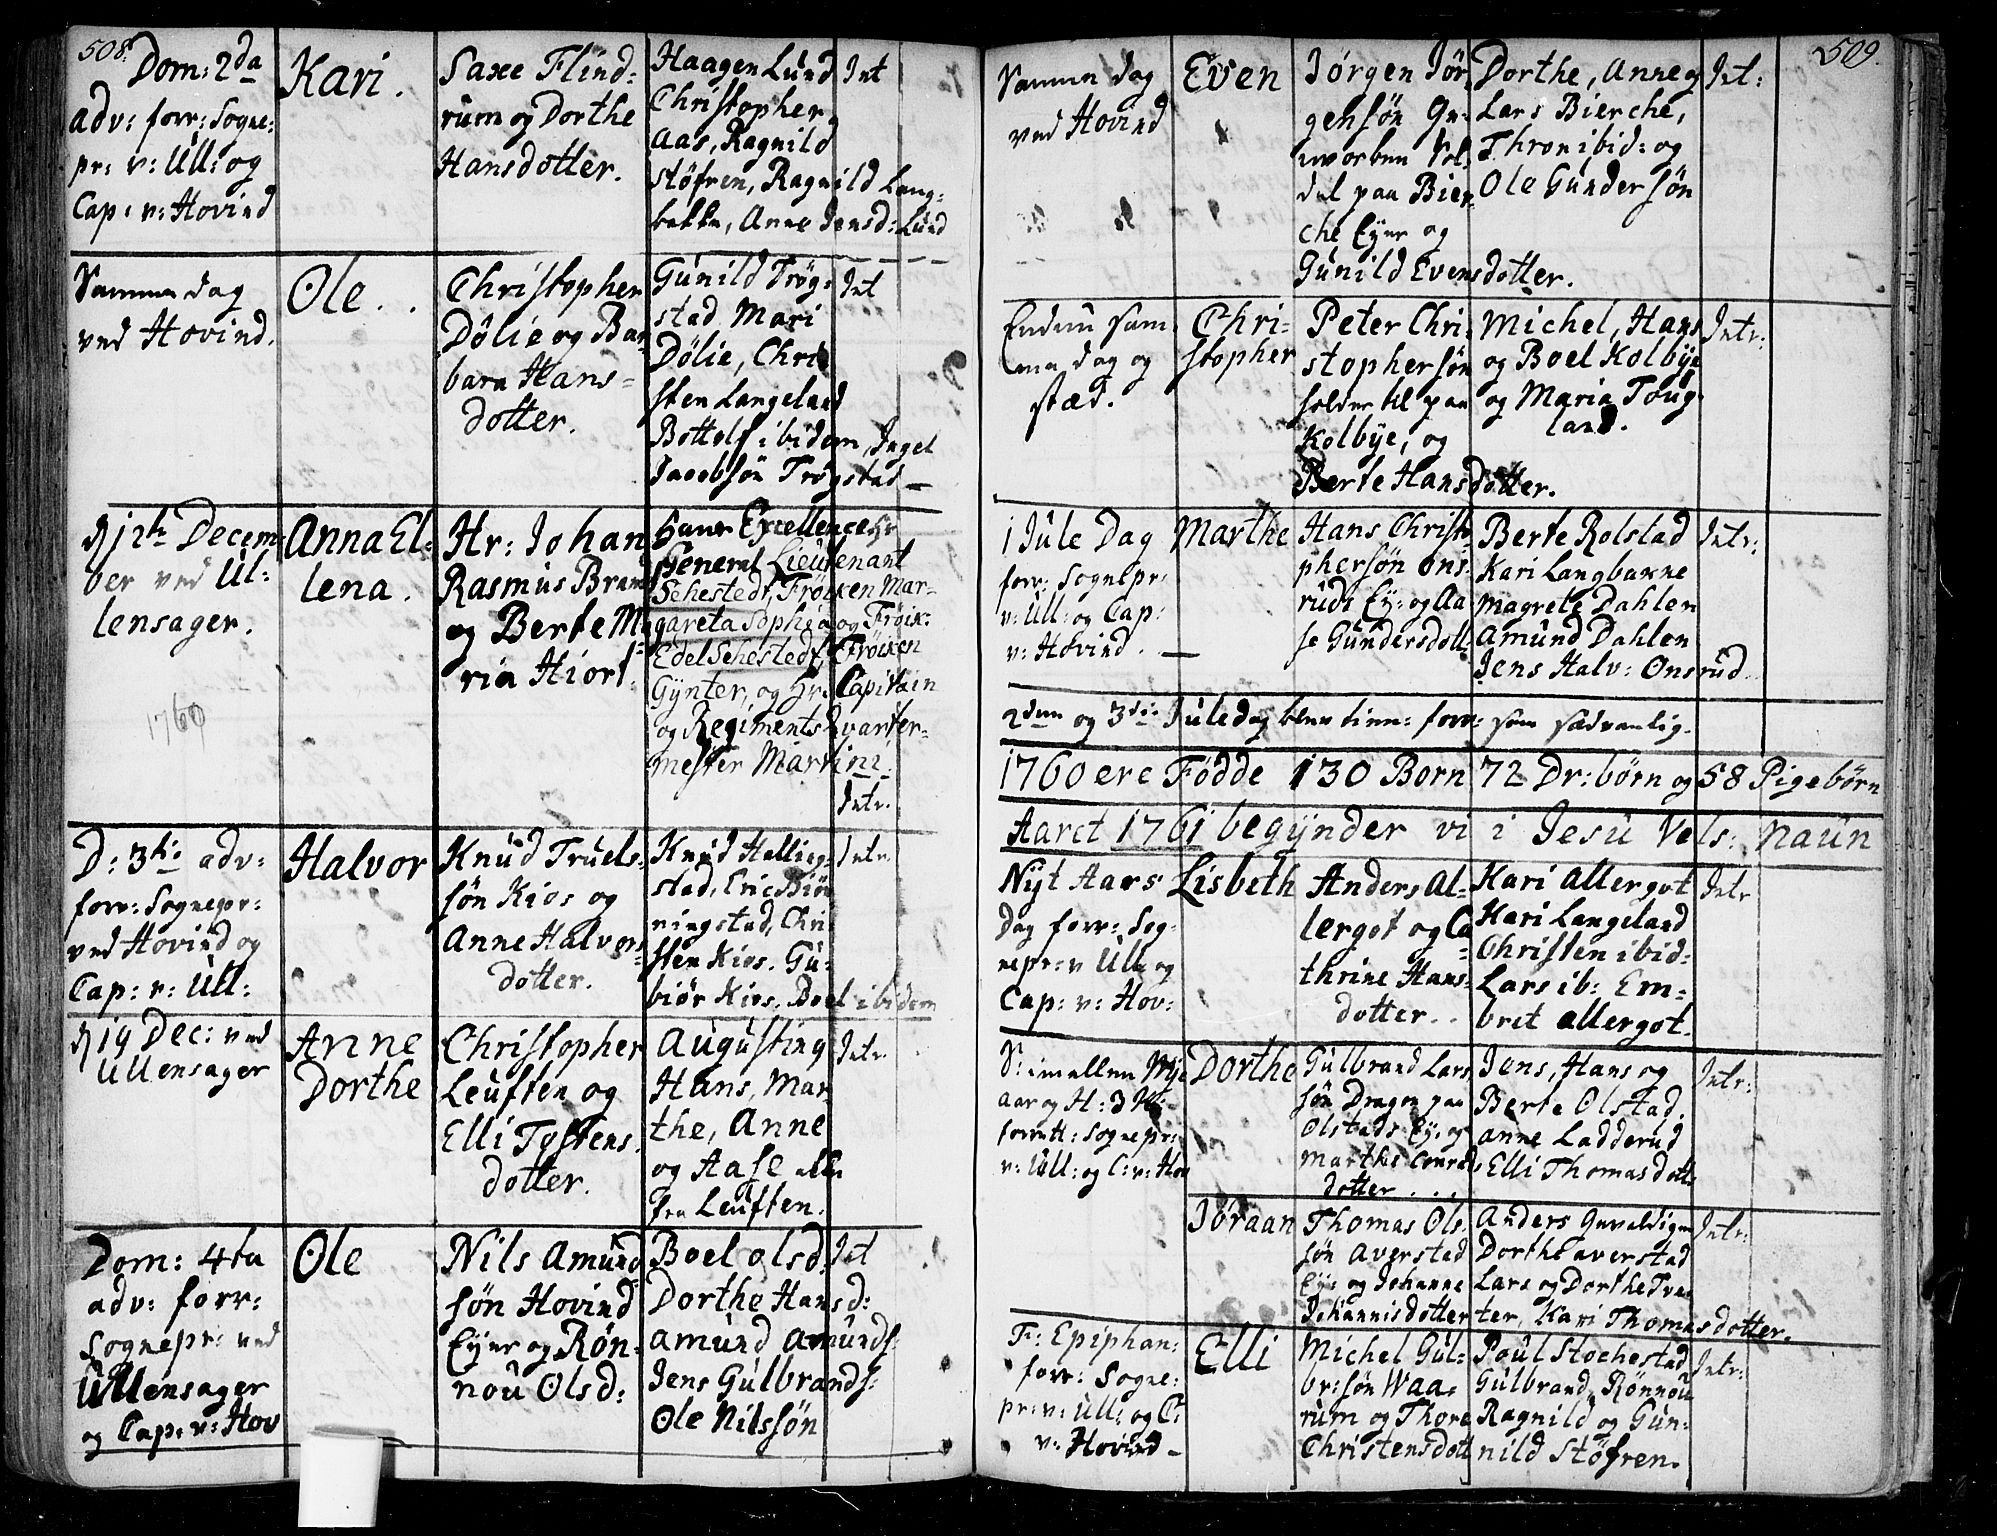 508.
Dom: 2da
adv: forr: Sogne-
pr: v: Ull: og
Cap: v: Hovind
Kari.
Saxe Flind-
rum og Dorthe
Hansdotter.
Haagen Lund
Christopher
Aas, Ragnild
Støfren, Ragnild Lang-
bakke, Anne Jensd: Lund
Int
Samme dag
ved Hovind.
Ole.
Christopher
Dölie og Bar-
bara Hans-
dotter.
Gunild Trög-
stad, Mari
Dölie, Chri
sten Langeland
Bottolf ibidem, Ingel
Jacobsön Trögstad
Int
12te Decem-
ber ved Ul-
lensager.
1760
Anna El-
lena.
Hr: Johan
Rasmus Brand
og Berte Ma-
ria Hiort.
Hans Excellence Hr
General Lieutenant
Sehestedt, Fröiken Mar-
gareta Sophia og Fröik:
Edel Sehestedt, Fröiken
Gynter, og Hr: Capitain
og Regiments Qvarter-
mester Martini.
Intr.
D: 3tia adv:
forr: Sognepr:
ved Hovind og
Cap: v: Ull:
Halvor
Knud Truels-
sön Kios og
Anne Halvors-
dotter.
Knud Halling-
stad, Eric Biön
ningstad, Chri-
sten Kios. Gu-
biör Kios. Boel ibidem
Intr.
19 Dec: ved
Ullensager
Anne
Dorthe
Christopher
Leuften og
Elli Tostens-
dotter.
Augusting
Hans, Mar
the, Anne
og Aase alle
fra Leuften.
Intr
Dom: 4ta
adv: forr:
Sognepr: ved
Ullensager
og Cap: v: Hov
Ole
Nils Amund-
sön Hovind
Eyer og Rön-
nou Olsd:
Boel Olsd.
Dorthe Hansd:
Amund Amunds:
Jens Gulbrands:
Ole Nilssön
Int
509.
Samme dag
ved Hovind
Even
Jörgen Jör-
gensön Ge-
worben Sol-
dat paa Bier-
che Eyer og
Gunild Evensdotter.
Dorthe, Anne og
Lars Bierche,
Thron ibid: og
Ole Gundersön
Int:
Endnu sam
me dag og
stæd.
Chri-
stopher
Peter Chri-
stophersön
holder til paa
Kolbye, og
Berte Hansdotter.
Michel, Hans
og Boel Kolbye
og Maria Toug-
land.
Intr:
1 Jule Dag
forr: Sognepr:
v: Ull: og Cap:
v: Hovind.
Marthe
Hans Christo-
phersön Ons-
ruds Ey: og Aa
se Gundersdott
Berte Rolstad
Kari Langbakne
Magrete Dahlen
Amund Dahlen
Jens Halv: Onsrud
Intr:
2den og 3die Juledag blev tien: forr: som sædvanlig.
1760 ere Födde 130 Born 72 Dr: börn og 58 Pigebörn
Aaret 1761 begynder vi i Jesu Vels: Naun
Nyt Aars
Dag forr: Sog-
nepr: v Ull: og
Cap: v: Hov:
Lisbeth
Anders Al-
lergot og Ca-
thrine Hans-
dotter.
Kari Allergot
Kari Langeland
Christen ibid:
Lars ib: Em-
bret Allergot.
Intr
S: imellem Nye
aar og H: 3 K:
forrett: Sognepr:
v: Ull: og C: v: Hov
Dorthe
Gulbrand Lars
sön Dragon paa
Olstads Ey: og
Marthe Conrads
dotter...
Jens, Hans og
Berte Olstad.
Anne Ladderud
Elli Thomasdott:
Intr:
Jöraan
Thomas Ols-
sön Averstad
Eye og Johanne
Johannisdotter
Anders Gevaldigen
Dorthe Averstad
Lars og Dorthe Tve-
ter, Kari Thomasdotter.
Intr:
F: Epiphan:
forr: Sogne-
pr: v: Ull: og C:
v: Hovind
Elli
Michel Gul-
br: sön Waa-
rum og Thore
Christensdott
Poul Stochestad
Gulbrand, Rönnou
Ragnild og Gun-
nild Stöfren.
Intr: